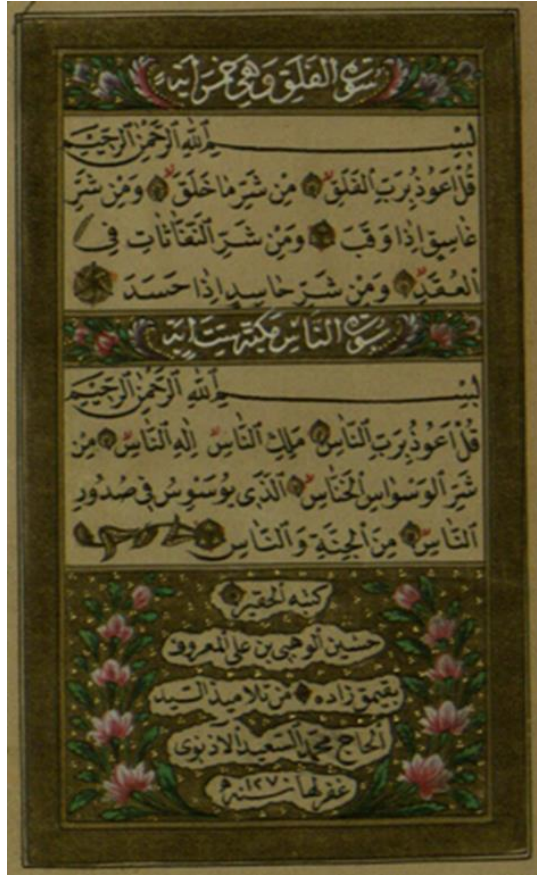 سورة الفلق وهي خمس اية
بِسْــــــــمِ اللّٰهِ الرَّحْمٰنِ الرَّحِيْمِ
قُلْ اَعُوذُ بِرَبِّ الْفَلَقِ مِنْ شَرِّ مَا خَلَقَ وَمِنْ شَرِّ
غَاسِقٍ اِذَا وَقَبَ وَمِنْ شَرِّ النَّفَّاثَاتِ فِي
الْعُقَدِ وَمِنْ شَرِّ حَاسِدٍ اِذَا حَسَدَ
سورة الناس مكية ست اية
بِسْــــــــمِ اللّٰهِ الرَّحْمٰنِ الرَّحِيْمِ
قُلْ اَعُوذُ بِرَبِّ النَّاسِ مَلِكِ النَّاسِ اِلٰهِ النَّاسِ مِنْ
شَرِّ الْوَسْوَاسِ الْخَنَّاسِ الَّذِى يُوَسْوِسُ فِى صُدُورِ
النَّاسِ مِنَ الْجِنَّةِ وَالنَّاسِ
كتبه الحقير
حسين الوهبى بن على المعروف
بقيمق زاده من تلاميذ السيد
الحاج محمد السعيد الادنوى
غفر لهما سنه